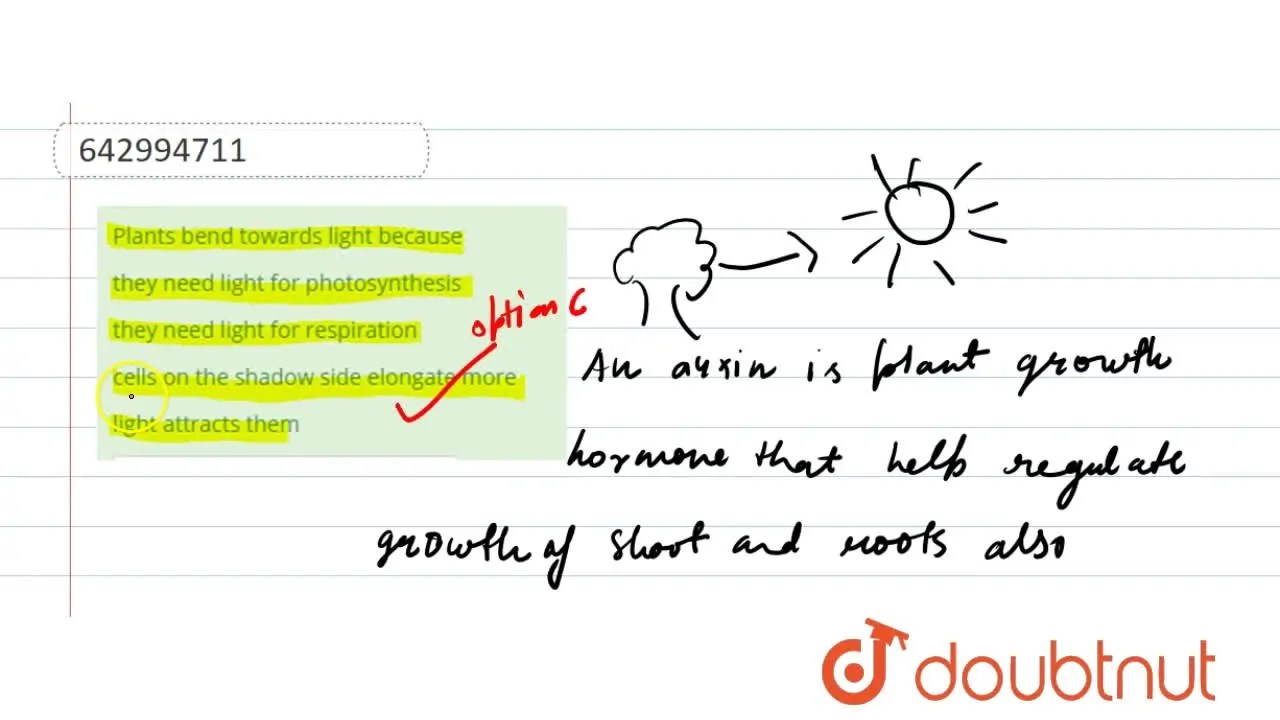 642994711
Plants bend towards light because
they need light for photosynthesis
they need light for respiration
cells on the shadow side elongate more
light attracts them
option C
An auxin is plant growth
hormone that help regulate
growth of shoot and roots also
doubtnut